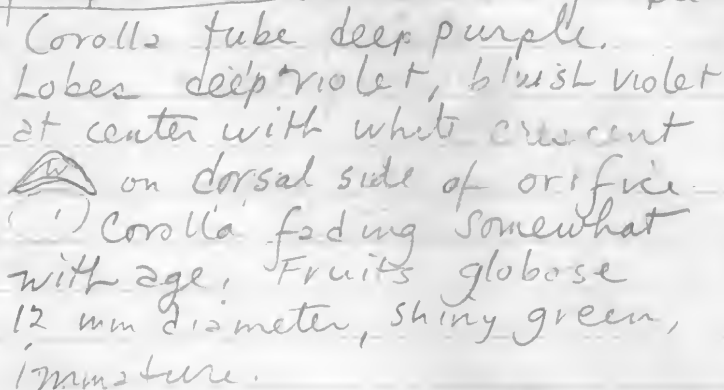 Corolla tube deep purple.
Lobes deep violet, bluish violet
at center with white crescent
W on dorsal side of orifice
Corolla fading somewhat
with age. Fruits globose
12 mm diameter, shiny green,
immature.